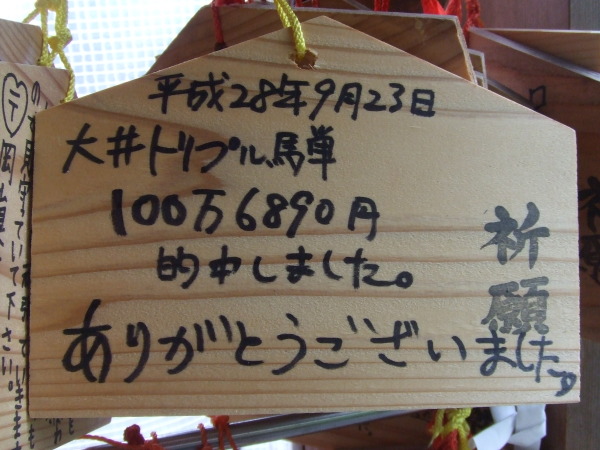 平成28年9月23日
大井トリプル馬単
100万6890円
的中しました。
ありがとうございました。
祈願